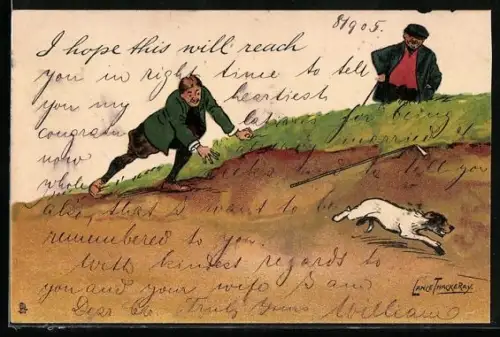 8/1905.
I hope this will reach
you in right time to tell
you my heartiest
congratulations for being
now married
whole to tell you
also, that I want to be
remembered to you.
With kindest regards to
you and your wife I am
Dear Truly Yours William
LANCE THACKERAY.